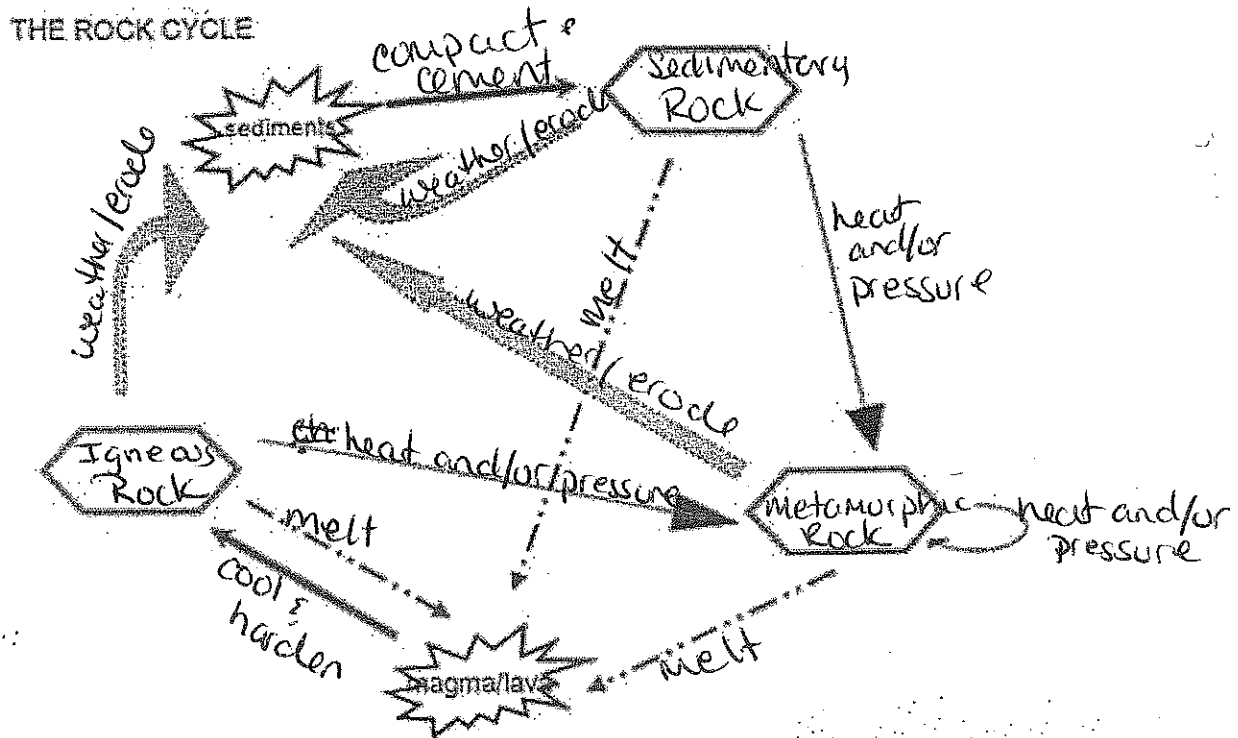 THE ROCK CYCLE
compact &
cement
Sedimentary
Rock
sediments
weather/erode
weather/erode
heat
and/or
pressure
melt
weather/erode
Igneous
Rock
heat and/or/pressure
Metamorphic
Rock
heat and/or
pressure
melt
cool &
harden
magma/lava
melt